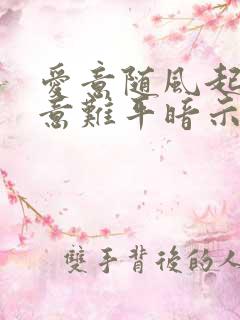 愛意随風起
意難平暗示
雙手背後的人